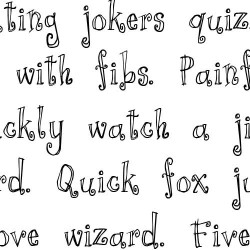 ting jokers quiz
with fibs. Painf
ckly watch a ji
rd. Quick fox ju
ove wizard. Five